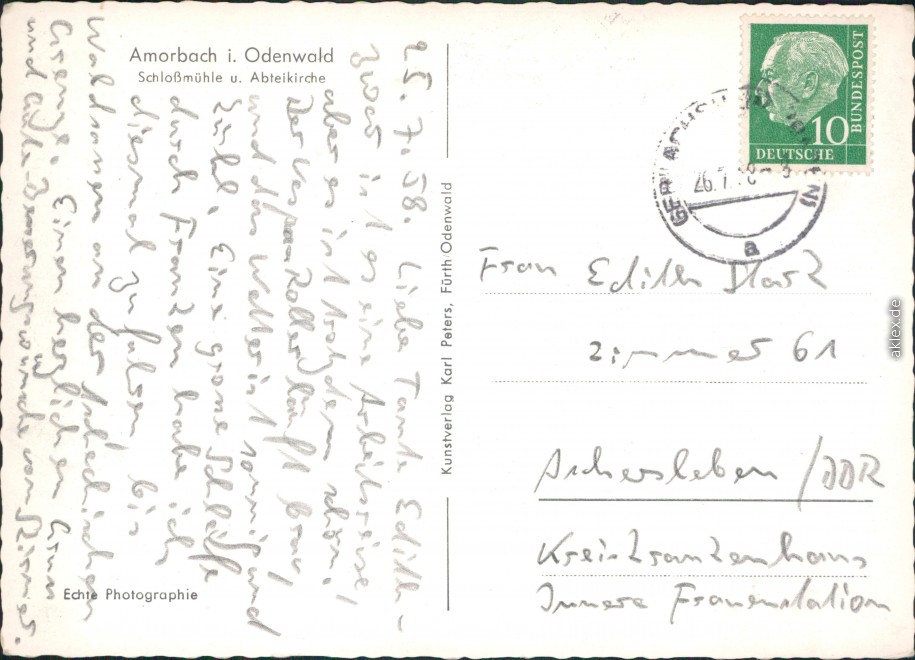 Amorbach i. Odenwald
Schloßmühle u. Abteikirche
25. 7. 58. Liebe Tante Edith –
zwar ist es eine Arbeitsreise,
aber es ist trotzdem schön.
Der Vespa-Roller läuft brav,
und das Wetter ist sonnig und
kühl. Eine grosse Schleife
durch Franken habe ich
diesmal zu fahren bis
Waldsassen an der tschechischen
Grenze. Einen herzlichen Gruss
und gute Besserungswünsche von
Echte Photographie
Kunstverlag Karl Peters, Fürth/Odenwald
10
DEUTSCHE
BUNDESPOST
26.7.
a
Frau Edith
Zimmer 61
Aschersleben / DDR
Kreiskrankenhaus
Innere Frauenstation
aklex.de